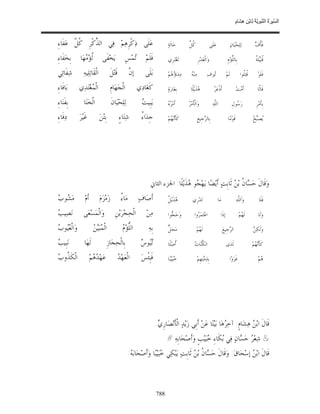 السِّيرَةُ النَّبَوِيَّةُ لِابْنِ هِشَامٍ
فَأُفٍّ لِلِحْيَانَ عَلَى كُلِّ حَالَةٍ عَلَى ذِكْرِهِمْ فِي الذِّكْرِ كُلَّ عَفَاءِ
قُبَيِّلَةٌ بِاللُّؤْمِ وَالْغَدْرِ تَغْتَرِي فَلَمْ تُمْسِ يَخْفَى لُؤْمُهَا بِخَفَاءِ
فَلَوْ قُتِلُوا لَمْ تُوفِ مِنْهُ دِمَاؤُهُمْ بَلَى إِنَّ قَتْلَ الْقَاتِلِيهِ شِفَائِي
فَإِلَّا أَمُتْ أَذْعَرْ هُذَيْلًا بِغَارَةٍ كَغَادِي الْجَهَامِ الْمُغْتَدِي بِإِفَاءِ
بِأَمْرِ رَسُولِ اللَّهِ وَالْأَمْرُ أَمْرُهُ يَبِيتُ لِلِحْيَانَ الْخَنَا بِفَنَاءِ
يُصَبِّحُ قَوْمًا بِالرَّجِيعِ كَأَنَّهُمْ جِدَاءُ شِتَاءٍ بِتْنَ غَيْرَ دِفَاءِ
وَقَالَ حَسَّانُ بْنُ ثَابِتٍ أَيْضًا يَهْجُو هُذَيْلًا: الجزء الثاني
فَلَا وَاللَّهِ مَا تَدْرِي هُذَيْلٌ أَصَافٍ مَاءُ زَمْزَمَ أَمْ مَشُوبُ
وَلَا لَهُمْ إِذَا اعْتَمَرُوا وَحَجُّوا مِنْ الْحِجْرَيْنِ وَالْمَسْعَى نَصِيبُ
وَلَكِنَّ الرَّجِيعَ لَهُمْ مَحَلٌّ بِهِ اللُّؤْمُ الْمُبَيَّنُ وَالْعُيُوبُ
كَأَنَّهُمْ لَدَى الْكَنَّاتِ أُصْلًا تُيُوسٌ بِالْحِجَازِ لَهَا نَبِيبُ
هُمْ غَرَوْا بِذِمَّتِهِمْ خُبَيْبًا فَبِئْسَ الْعَهْدُ عَهْدُهُمُ الْكَذُوبُ
قَالَ ابْنُ هِشَامٍ: آخِرُهَا بَيْتًا عَنْ أَبِي زَيْدٍ الْأَنْصَارِيِّ.
شِعْرُ حَسَّانَ فِي بُكَاءِ خُبَيْبٍ وَأَصْحَابِهِ
قَالَ ابْنُ إسْحَاقَ: وَقَالَ حَسَّانُ بْنُ ثَابِتٍ يَبْكِي خُبَيْبًا وَأَصْحَابَهُ
788